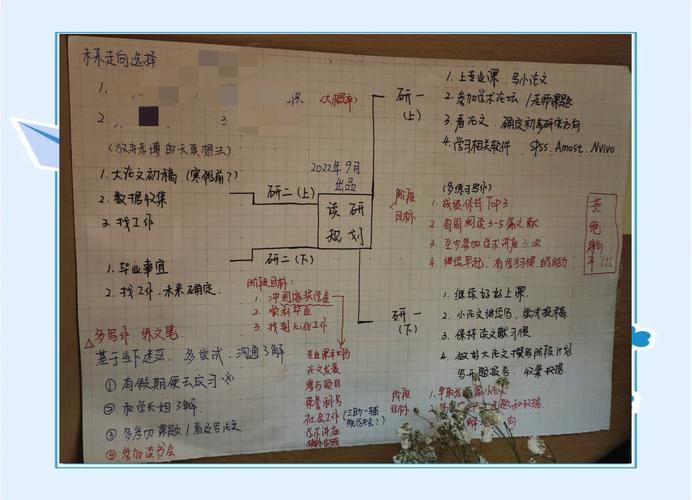 未来走向选择
1.
2. 3
(大概率)
(放弃考博的天真想法)
1. 大论文初稿 (寒假前?)
2. 数据收集
3. 找工作
研二(上)
2022年9月
出品
读研
规划
研二(下)
1. 毕业事宜
2. 找工作、未来确定.
研一
(上)
1. 上专业课、写小论文
2. 参加学术论坛 / 老师课题
3. 看论文、确定初步研究方向
4. 学习相关软件 Spss、Amost、Nvivo
阶段
目标
(多练习写作)
1. 成绩保持 Top 3
2. 每周阅读3-5篇文献
3. 至少参加学术讲座 3 次
4. 继续早起,有学习惯、自制力
拒绝躺平!!!
研一
(下)
1. 继续好好上课
2. 小论文继续写,尝试投稿
3. 保持读文献习惯
4. 做好大论文撰写阶段计划
写开题报告、收集数据
阶段
目标
阶段目标:
1. 冲国家奖学金
2. 顺利毕业
3. 找到心仪工作
论文发表
参与项目
荣誉称号
社会工作
学术讲座
多写作、练文笔
多尝试、沟通了解
① 有假期便去实习
② 和学长姐了解
③ 多参加课题 / 看及写论文
④ 参加读书会